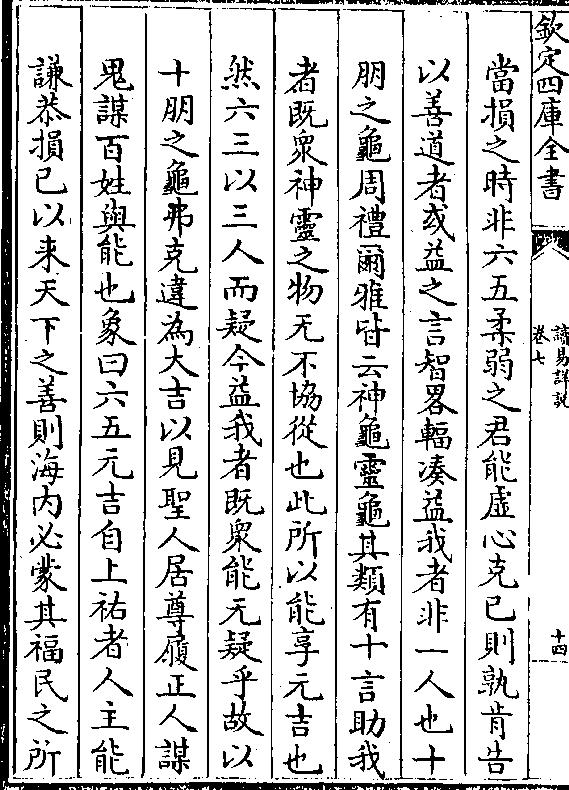 欽定四庫全書
讀易詳說
卷七
十四
當損之時非六五柔弱之君能虛心克已則孰肯告
以善道者或益之言智畧輻凑益我者非一人也十
朋之龜周禮爾雅皆云神龜靈龜其類有十言助我
者既衆神靈之物无不協從也此所以能享元吉也
然六三以三人而疑今益我者既衆能无疑乎故以
十朋之龜弗克違為大吉以見聖人居尊履正人謀
鬼謀百姓與能也象曰六五元吉自上祐者人主能
謙恭損已以来天下之善則海内必蒙其福民之所